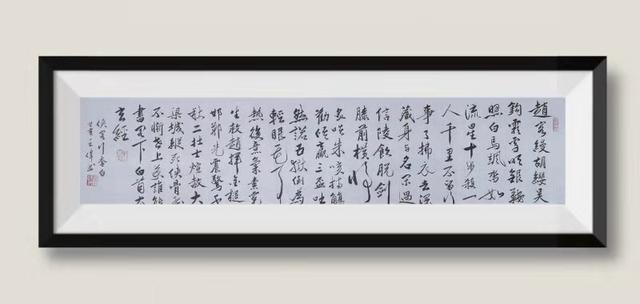 趙客縵胡纓吳
鉤霜雪明銀鞍
照白馬颯沓如
流星十步殺一
人千里不留行
事了拂衣去深
藏身與名閑過
信陵飲脫劍
膝前橫將
炙啖朱亥持觴
勸侯嬴三盃吐
然諾五嶽倒為
輕眼花耳
熱後意氣素霓
生救趙揮金槌
邯鄲先震驚千
秋二壯士烜赫大
梁城縱死俠骨香
不慚世上英誰能
書閣下白首太
玄經
俠客行李白